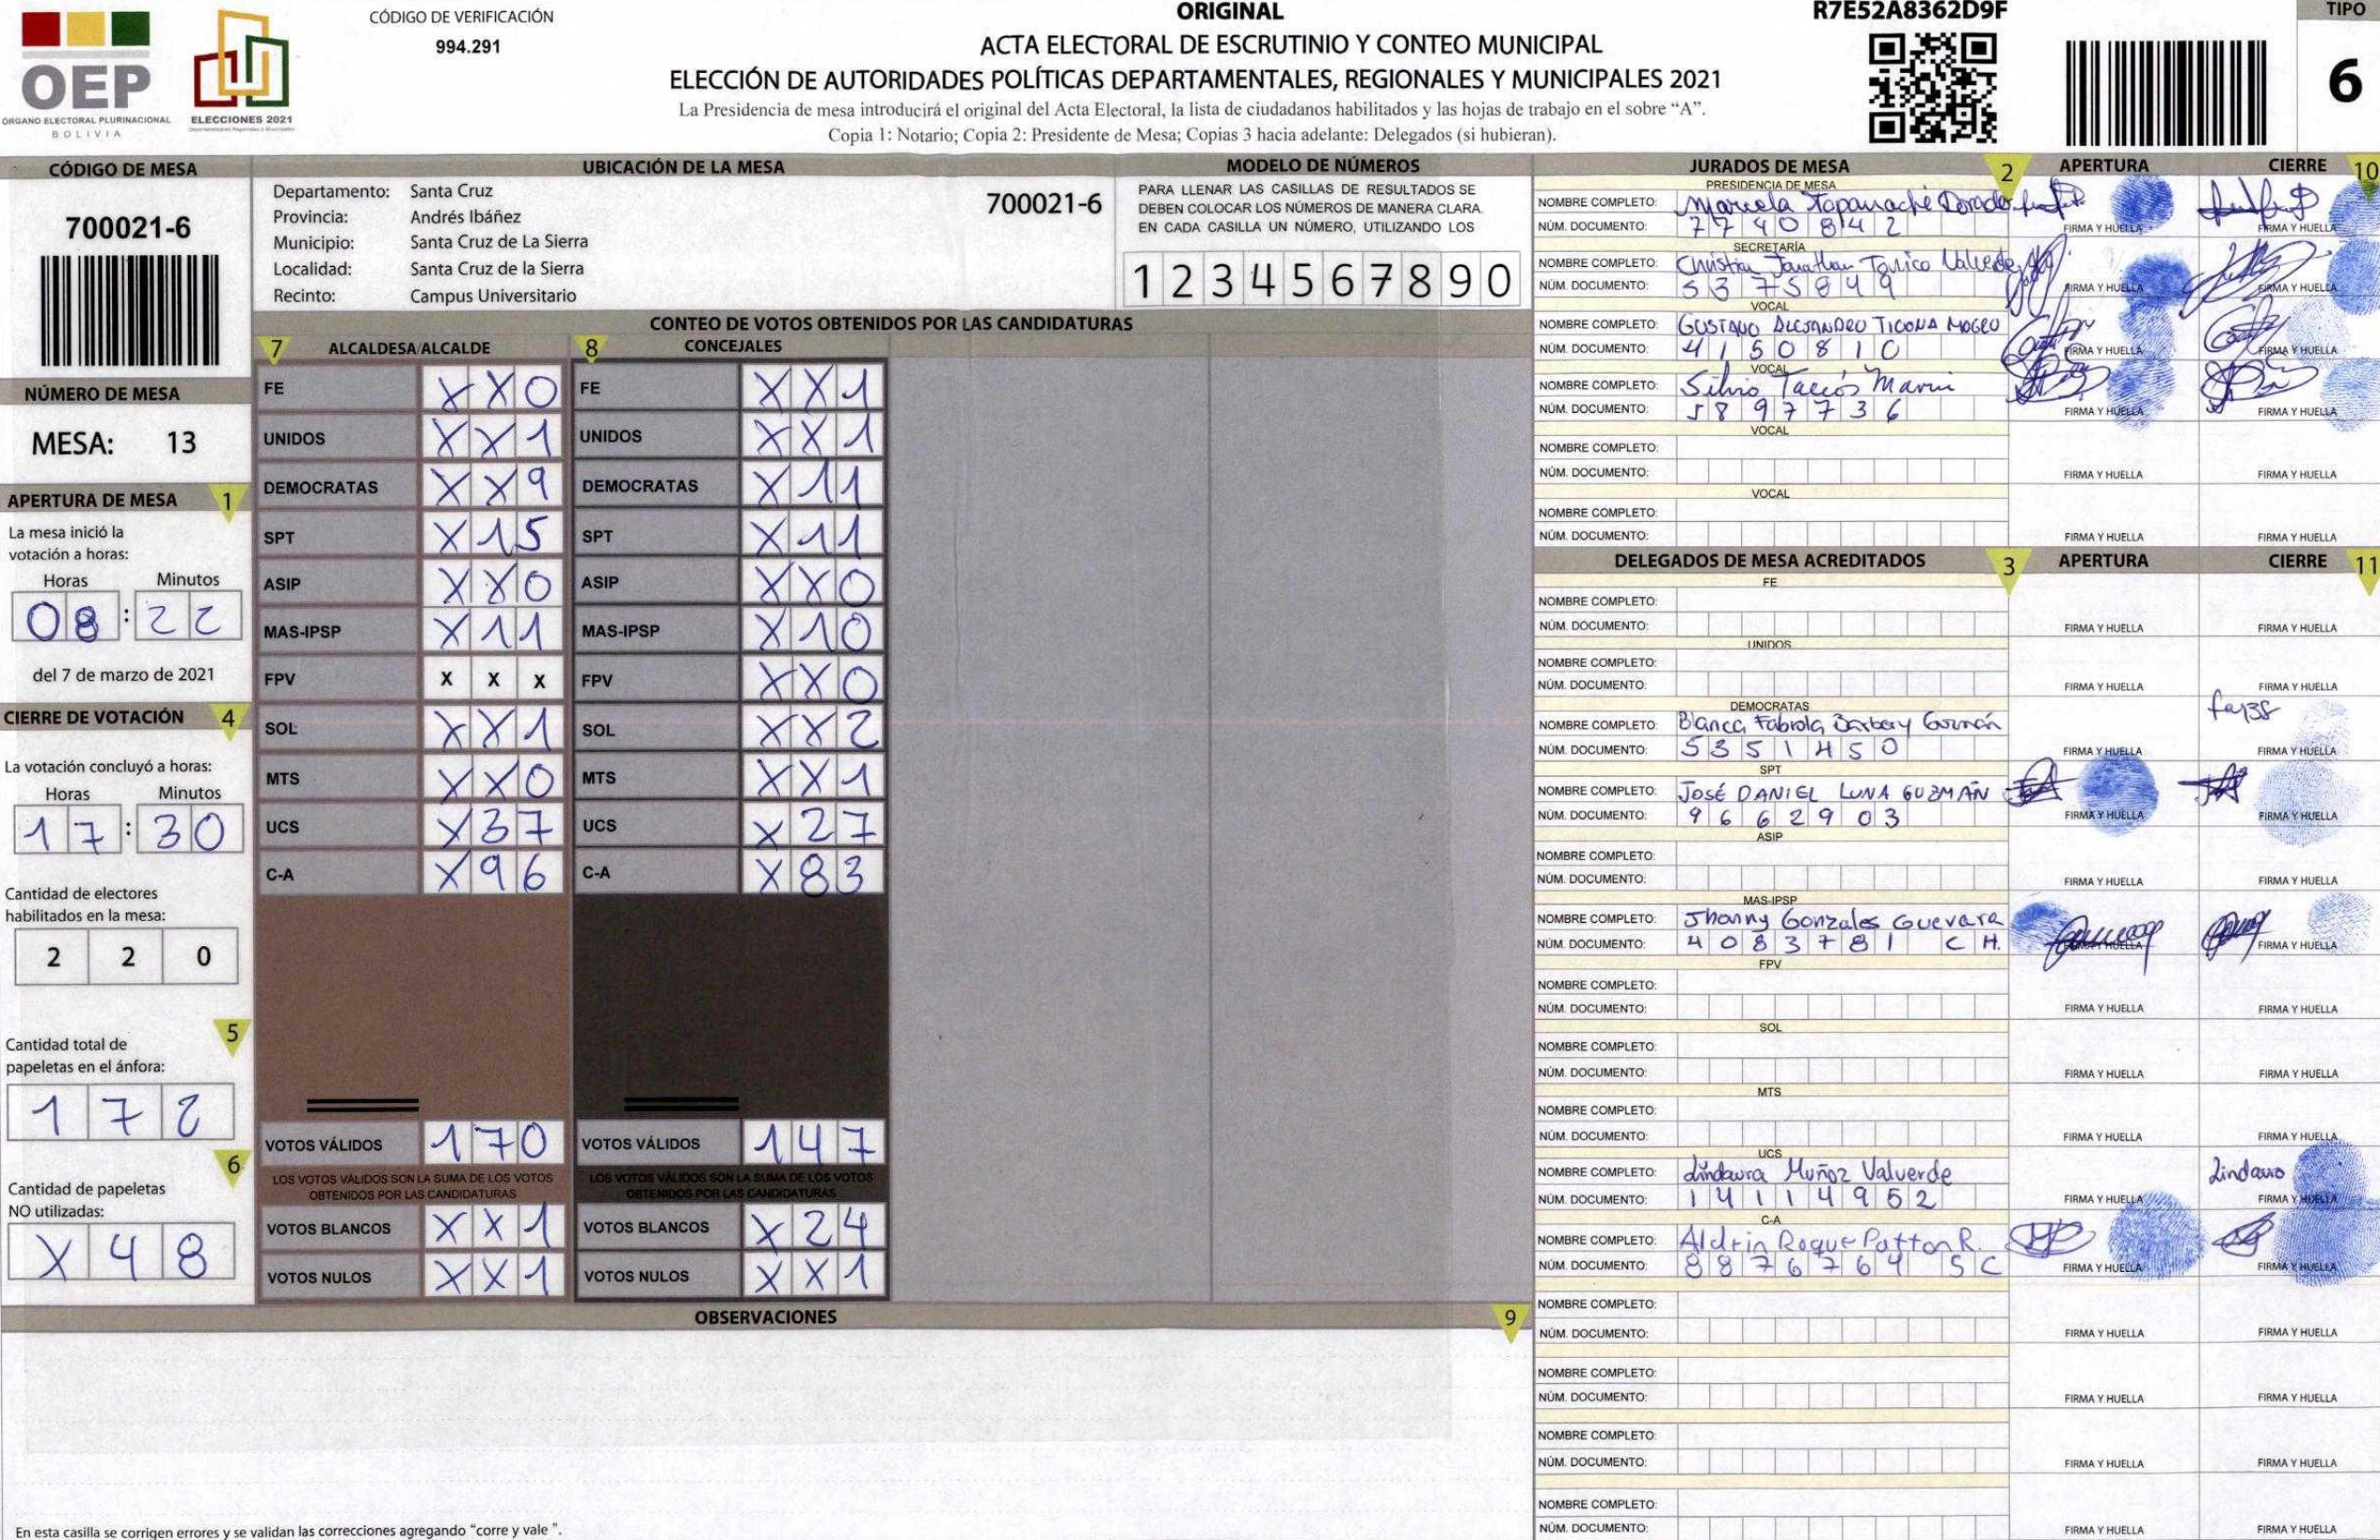 OEP
ÓRGANO ELECTORAL PLURINACIONAL
BOLIVIA
ELECCIONES 2021
CÓDIGO DE VERIFICACIÓN
994.291
ORIGINAL
ACTA ELECTORAL DE ESCRUTINIO Y CONTEO MUNICIPAL
ELECCIÓN DE AUTORIDADES POLÍTICAS DEPARTAMENTALES, REGIONALES Y MUNICIPALES 2021
La Presidencia de mesa introducirá el original del Acta Electoral, la lista de ciudadanos habilitados y las hojas de trabajo en el sobre “A”.
Copia 1: Notario; Copia 2: Presidente de Mesa; Copias 3 hacia adelante: Delegados (si hubieran).
R7E52A8362D9F
TIPO
6
CÓDIGO DE MESA
700021-6
NÚMERO DE MESA
MESA: 13
APERTURA DE MESA 1
La mesa inició la
votación a horas:
Horas Minutos
08 : 22
del 7 de marzo de 2021
CIERRE DE VOTACIÓN 4
La votación concluyó a horas:
Horas Minutos
17 : 30
Cantidad de electores
habilitados en la mesa:
2 2 0
5
Cantidad total de
papeletas en el ánfora:
1 7 2
6
Cantidad de papeletas
NO utilizadas:
X 4 8
UBICACIÓN DE LA MESA
Departamento: Santa Cruz
Provincia: Andrés Ibáñez
Municipio: Santa Cruz de La Sierra
Localidad: Santa Cruz de la Sierra
Recinto: Campus Universitario
700021-6
MODELO DE NÚMEROS
PARA LLENAR LAS CASILLAS DE RESULTADOS SE
DEBEN COLOCAR LOS NÚMEROS DE MANERA CLARA.
EN CADA CASILLA UN NÚMERO, UTILIZANDO LOS
1 2 3 4 5 6 7 8 9 0
CONTEO DE VOTOS OBTENIDOS POR LAS CANDIDATURAS
7 ALCALDESA/ALCALDE 8 CONCEJALES
FE X X 0 FE X X 1
UNIDOS X X 1 UNIDOS X X 1
DEMOCRATAS X X 9 DEMOCRATAS X 1 1
SPT X 1 5 SPT X 1 1
ASIP X X 0 ASIP X X 0
MAS-IPSP X 1 1 MAS-IPSP X 1 0
FPV X X X FPV X X 0
SOL X X 1 SOL X X 2
MTS X X 0 MTS X X 1
UCS X 3 7 UCS X 2 7
C-A X 9 6 C-A X 8 3
VOTOS VÁLIDOS 1 7 0 VOTOS VÁLIDOS 1 4 7
LOS VOTOS VÁLIDOS SON LA SUMA DE LOS VOTOS LOS VOTOS VÁLIDOS SON LA SUMA DE LOS VOTOS
OBTENIDOS POR LAS CANDIDATURAS OBTENIDOS POR LAS CANDIDATURAS
VOTOS BLANCOS X X 1 VOTOS BLANCOS X 2 4
VOTOS NULOS X X 1 VOTOS NULOS X X 1
OBSERVACIONES 9
En esta casilla se corrigen errores y se validan las correcciones agregando “corre y vale ”.
JURADOS DE MESA 2 APERTURA CIERRE 10
PRESIDENCIA DE MESA
NOMBRE COMPLETO: Marcela
NÚM. DOCUMENTO: 7 7 4 0 8 4 2 FIRMA Y HUELLA FIRMA Y HUELLA
SECRETARÍA
NOMBRE COMPLETO: Christian Jonathan Tarico Valverde
NÚM. DOCUMENTO: 5 3 7 5 8 4 9 FIRMA Y HUELLA FIRMA Y HUELLA
VOCAL
NOMBRE COMPLETO: GUSTAVO ALEJANDRO TICONA MOGRO
NÚM. DOCUMENTO: 4 1 5 0 8 1 0 FIRMA Y HUELLA FIRMA Y HUELLA
VOCAL
NOMBRE COMPLETO: Silvio
NÚM. DOCUMENTO: 5 8 9 7 7 3 6 FIRMA Y HUELLA FIRMA Y HUELLA
VOCAL
NOMBRE COMPLETO:
NÚM. DOCUMENTO: FIRMA Y HUELLA FIRMA Y HUELLA
VOCAL
NOMBRE COMPLETO:
NÚM. DOCUMENTO: FIRMA Y HUELLA FIRMA Y HUELLA
DELEGADOS DE MESA ACREDITADOS 3 APERTURA CIERRE 11
FE
NOMBRE COMPLETO:
NÚM. DOCUMENTO: FIRMA Y HUELLA FIRMA Y HUELLA
UNIDOS
NOMBRE COMPLETO:
NÚM. DOCUMENTO: FIRMA Y HUELLA FIRMA Y HUELLA
DEMOCRATAS
NOMBRE COMPLETO: Blanca Fabiola Barbery Guzmán
NÚM. DOCUMENTO: 5 3 5 1 4 5 0 FIRMA Y HUELLA FIRMA Y HUELLA
SPT
NOMBRE COMPLETO: JOSÉ DANIEL LUNA GUZMÁN
NÚM. DOCUMENTO: 9 6 6 2 9 0 3 FIRMA Y HUELLA FIRMA Y HUELLA
ASIP
NOMBRE COMPLETO:
NÚM. DOCUMENTO: FIRMA Y HUELLA FIRMA Y HUELLA
MAS-IPSP
NOMBRE COMPLETO: Jhonny Gonzales Guevara
NÚM. DOCUMENTO: 4 0 8 3 7 8 1 C H. FIRMA Y HUELLA FIRMA Y HUELLA
FPV
NOMBRE COMPLETO:
NÚM. DOCUMENTO: FIRMA Y HUELLA FIRMA Y HUELLA
SOL
NOMBRE COMPLETO:
NÚM. DOCUMENTO: FIRMA Y HUELLA FIRMA Y HUELLA
MTS
NOMBRE COMPLETO:
NÚM. DOCUMENTO: FIRMA Y HUELLA FIRMA Y HUELLA
UCS
NOMBRE COMPLETO: Lindaura Muñoz Valverde Lindaura
NÚM. DOCUMENTO: 1 4 1 1 4 9 5 2 FIRMA Y HUELLA FIRMA Y HUELLA
C-A
NOMBRE COMPLETO: Aldrin Roque Patton R.
NÚM. DOCUMENTO: 8 8 7 6 7 6 4 S C FIRMA Y HUELLA FIRMA Y HUELLA
NOMBRE COMPLETO:
NÚM. DOCUMENTO: FIRMA Y HUELLA FIRMA Y HUELLA
NOMBRE COMPLETO:
NÚM. DOCUMENTO: FIRMA Y HUELLA FIRMA Y HUELLA
NOMBRE COMPLETO:
NÚM. DOCUMENTO: FIRMA Y HUELLA FIRMA Y HUELLA
NOMBRE COMPLETO:
NÚM. DOCUMENTO: FIRMA Y HUELLA FIRMA Y HUELLA